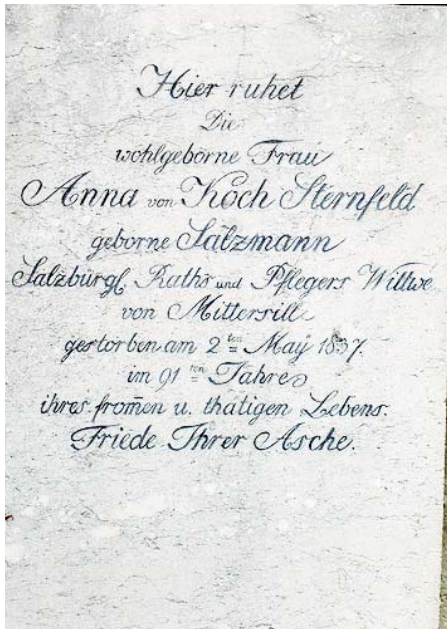 Hier ruhet
Die
wohlgeborne Frau
Anna von Koch Sternfeld
geborne Salzmann
Salzburgl. Raths und Pflegers Wittwe
von Mittersill
gestorben am 2ten May 1837.
im 91ten Jahre
ihres from̅en u. thätigen Lebens.
Friede Ihrer Asche.